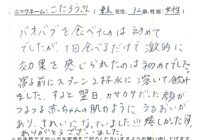 ニックネーム：こたろう 東京在住、12歳、性別：女性
バオバブを食べたのは初めて
でしたが、1回食べるだけで激的に
効果を感じられたのは初めてでした
寝る前にスプーン2杯水に溶いて飲み
ました。すると翌日、カサカサだった顔が
つるつる赤ちゃんの肌のように、うるおいが
あり、きれいになっていました!!!嬉しかった
ありがとうございました。